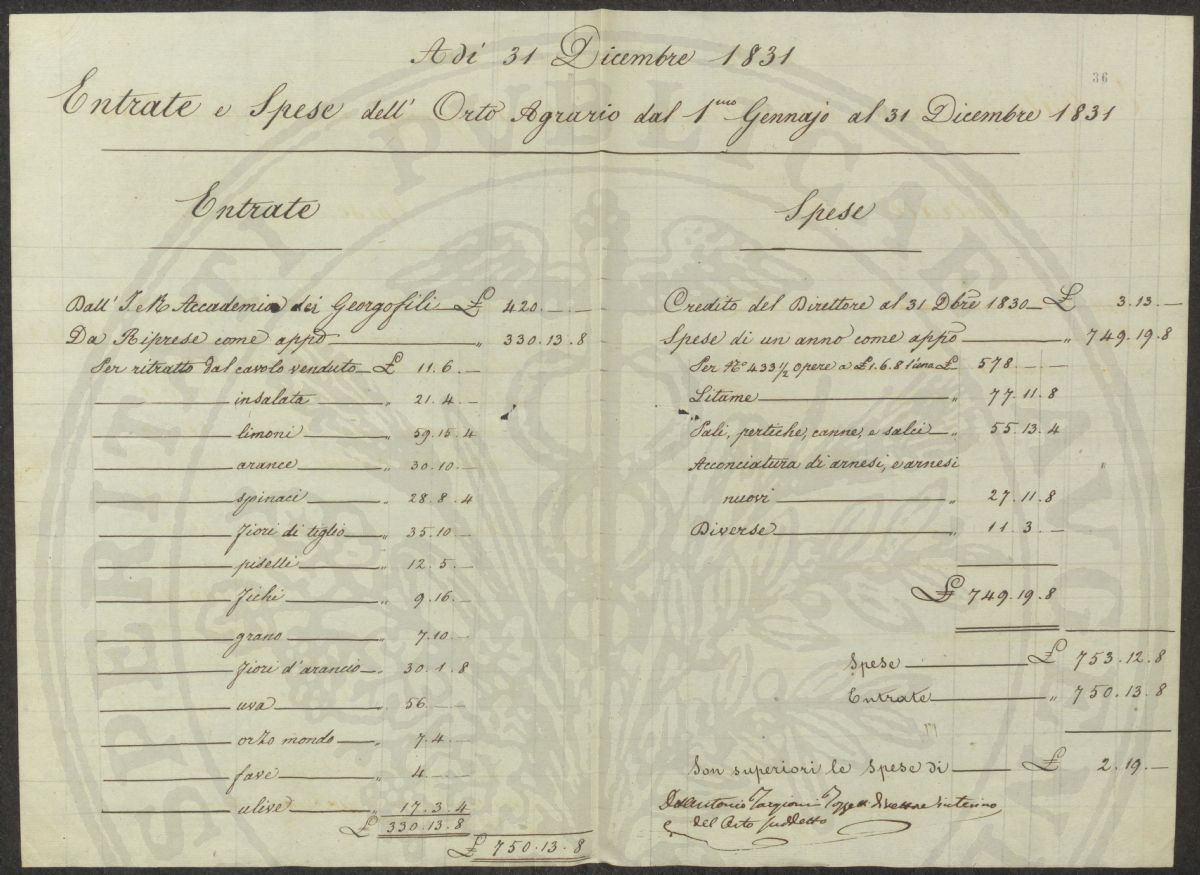 A di 31 Dicembre 1831
36
Entrate e Spese dell' Orto Agrario dal 1mo Gennajo al 31 Dicembre 1831
Entrate
Dall' I. e R. Accademia dei Georgofili £ 420. — —
Da Riprese come appo „ 330.13.8
Per ritratto dal cavolo venduto £ 11.6. —
insalata „ 21.4. —
limoni „ 59.15.4
arance „ 30.10. —
spinaci „ 28.8.4
fiori di tiglio „ 35.10. —
piselli „ 12.5. —
fichi „ 9.16. —
grano „ 7.10. —
fiori d'arancio „ 30.1.8
uva „ 56. — —
orzo mondo „ 7.4. —
fave „ 4. — —
ulive „ 17.3.4
£ 330.13.8
£ 750.13.8
Spese
Credito del Direttore al 31 Dbre 1830 £ 3.13. —
Spese di un anno come appo „ 749.19.8
Per No 433 1/2 opere a £ 1.6.8 l'una £ 578. — —
Litame „ 77.11.8
Pali, pertiche, canne, e salci „ 55.13.4
Acconciatura di arnesi, e arnesi
nuovi „ 27.11.8
Diverse „ 11.3. —
£ 749.19.8
Spese £ 753.12.8
Entrate „ 750.13.8
Son superiori le Spese di £ 2.19. —
Dott Antonio Targioni Tozzetti Direttore interino
del Orto suddetto
SPERITI PUBLICAE AUGE